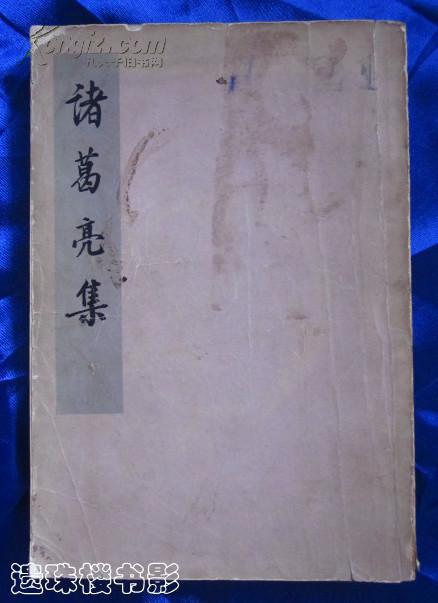 Kongfz.com
孔夫子旧书网
诸葛亮集
遗珠楼书影